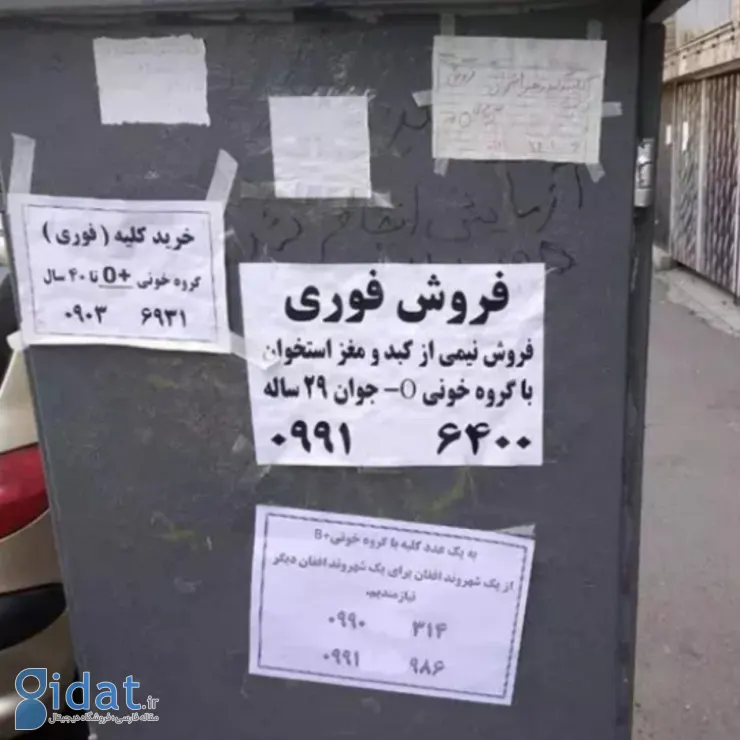 خرید کلیه ( فوری )
گروه خونی +O تا ۴۰ سال
۰۹۰۳ ۶۹۳۱
آزمایش انجام
فروش فوری
فروش نیمی از کبد و مغز استخوان
با گروه خونی O- جوان ۲۹ ساله
۰۹۹۱ ۶۴۰۰
به یک عدد کلیه با گروه خونی B+
از یک شهروند افغان برای یک شهروند افغان دیگر
نیازمندیم.
۰۹۹۰ ۳۱۴
۰۹۹۱ ۹۸۶
gidat.ir
مقاله فارسی، فروشگاه دیجیتال